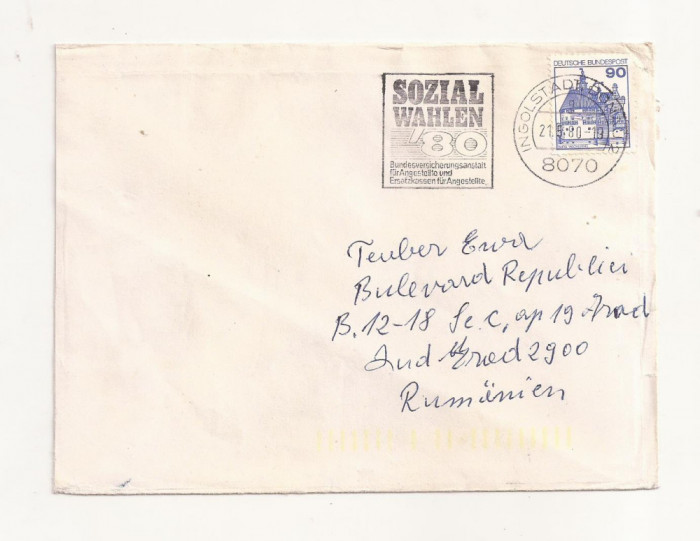 DEUTSCHE BUNDESPOST
90
SOZIAL
WAHLEN
'80
Bundesversicherungsanstalt
für Angestellte und
Ersatzkassen für Angestellte
INGOLSTADT
21.5.80-19
8070
Teuber Ewa
Bulevard Republici
B. 12-18 Sc. C, ap 19 Arad
Jud Arad 2900
Rumänien